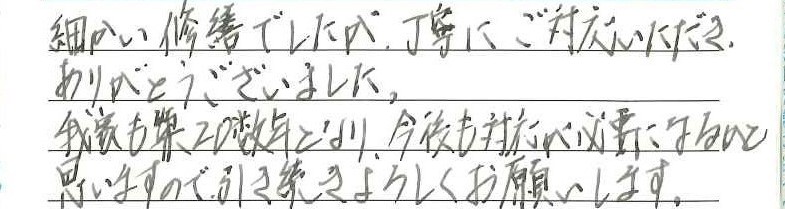 細かい修繕でしたが、丁寧にご対応いただき、
ありがとうございました。
我家も築20数年となり、今後も対応が必要になるかと
思いますので、引き続きよろしくお願いします。